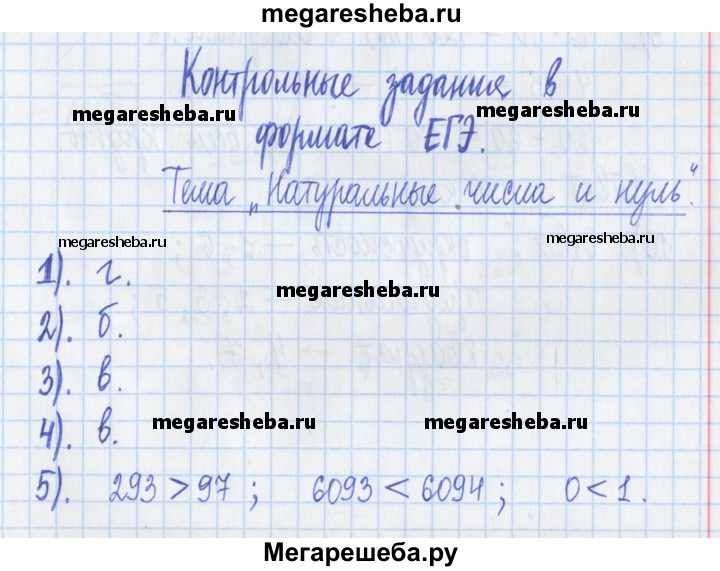 megaresheba.ru
Контрольные задания в
megaresheba.ru megaresheba.ru
формате ЕГЭ.
Тема „Натуральные числа и нуль“.
megaresheba.ru megaresheba.ru
1). г.
megaresheba.ru
2). б.
3). в.
4). в.
megaresheba.ru megaresheba.ru
5). 293 > 97 ; 6093 < 6094 ; 0 < 1 .
Мегарешеба.ру